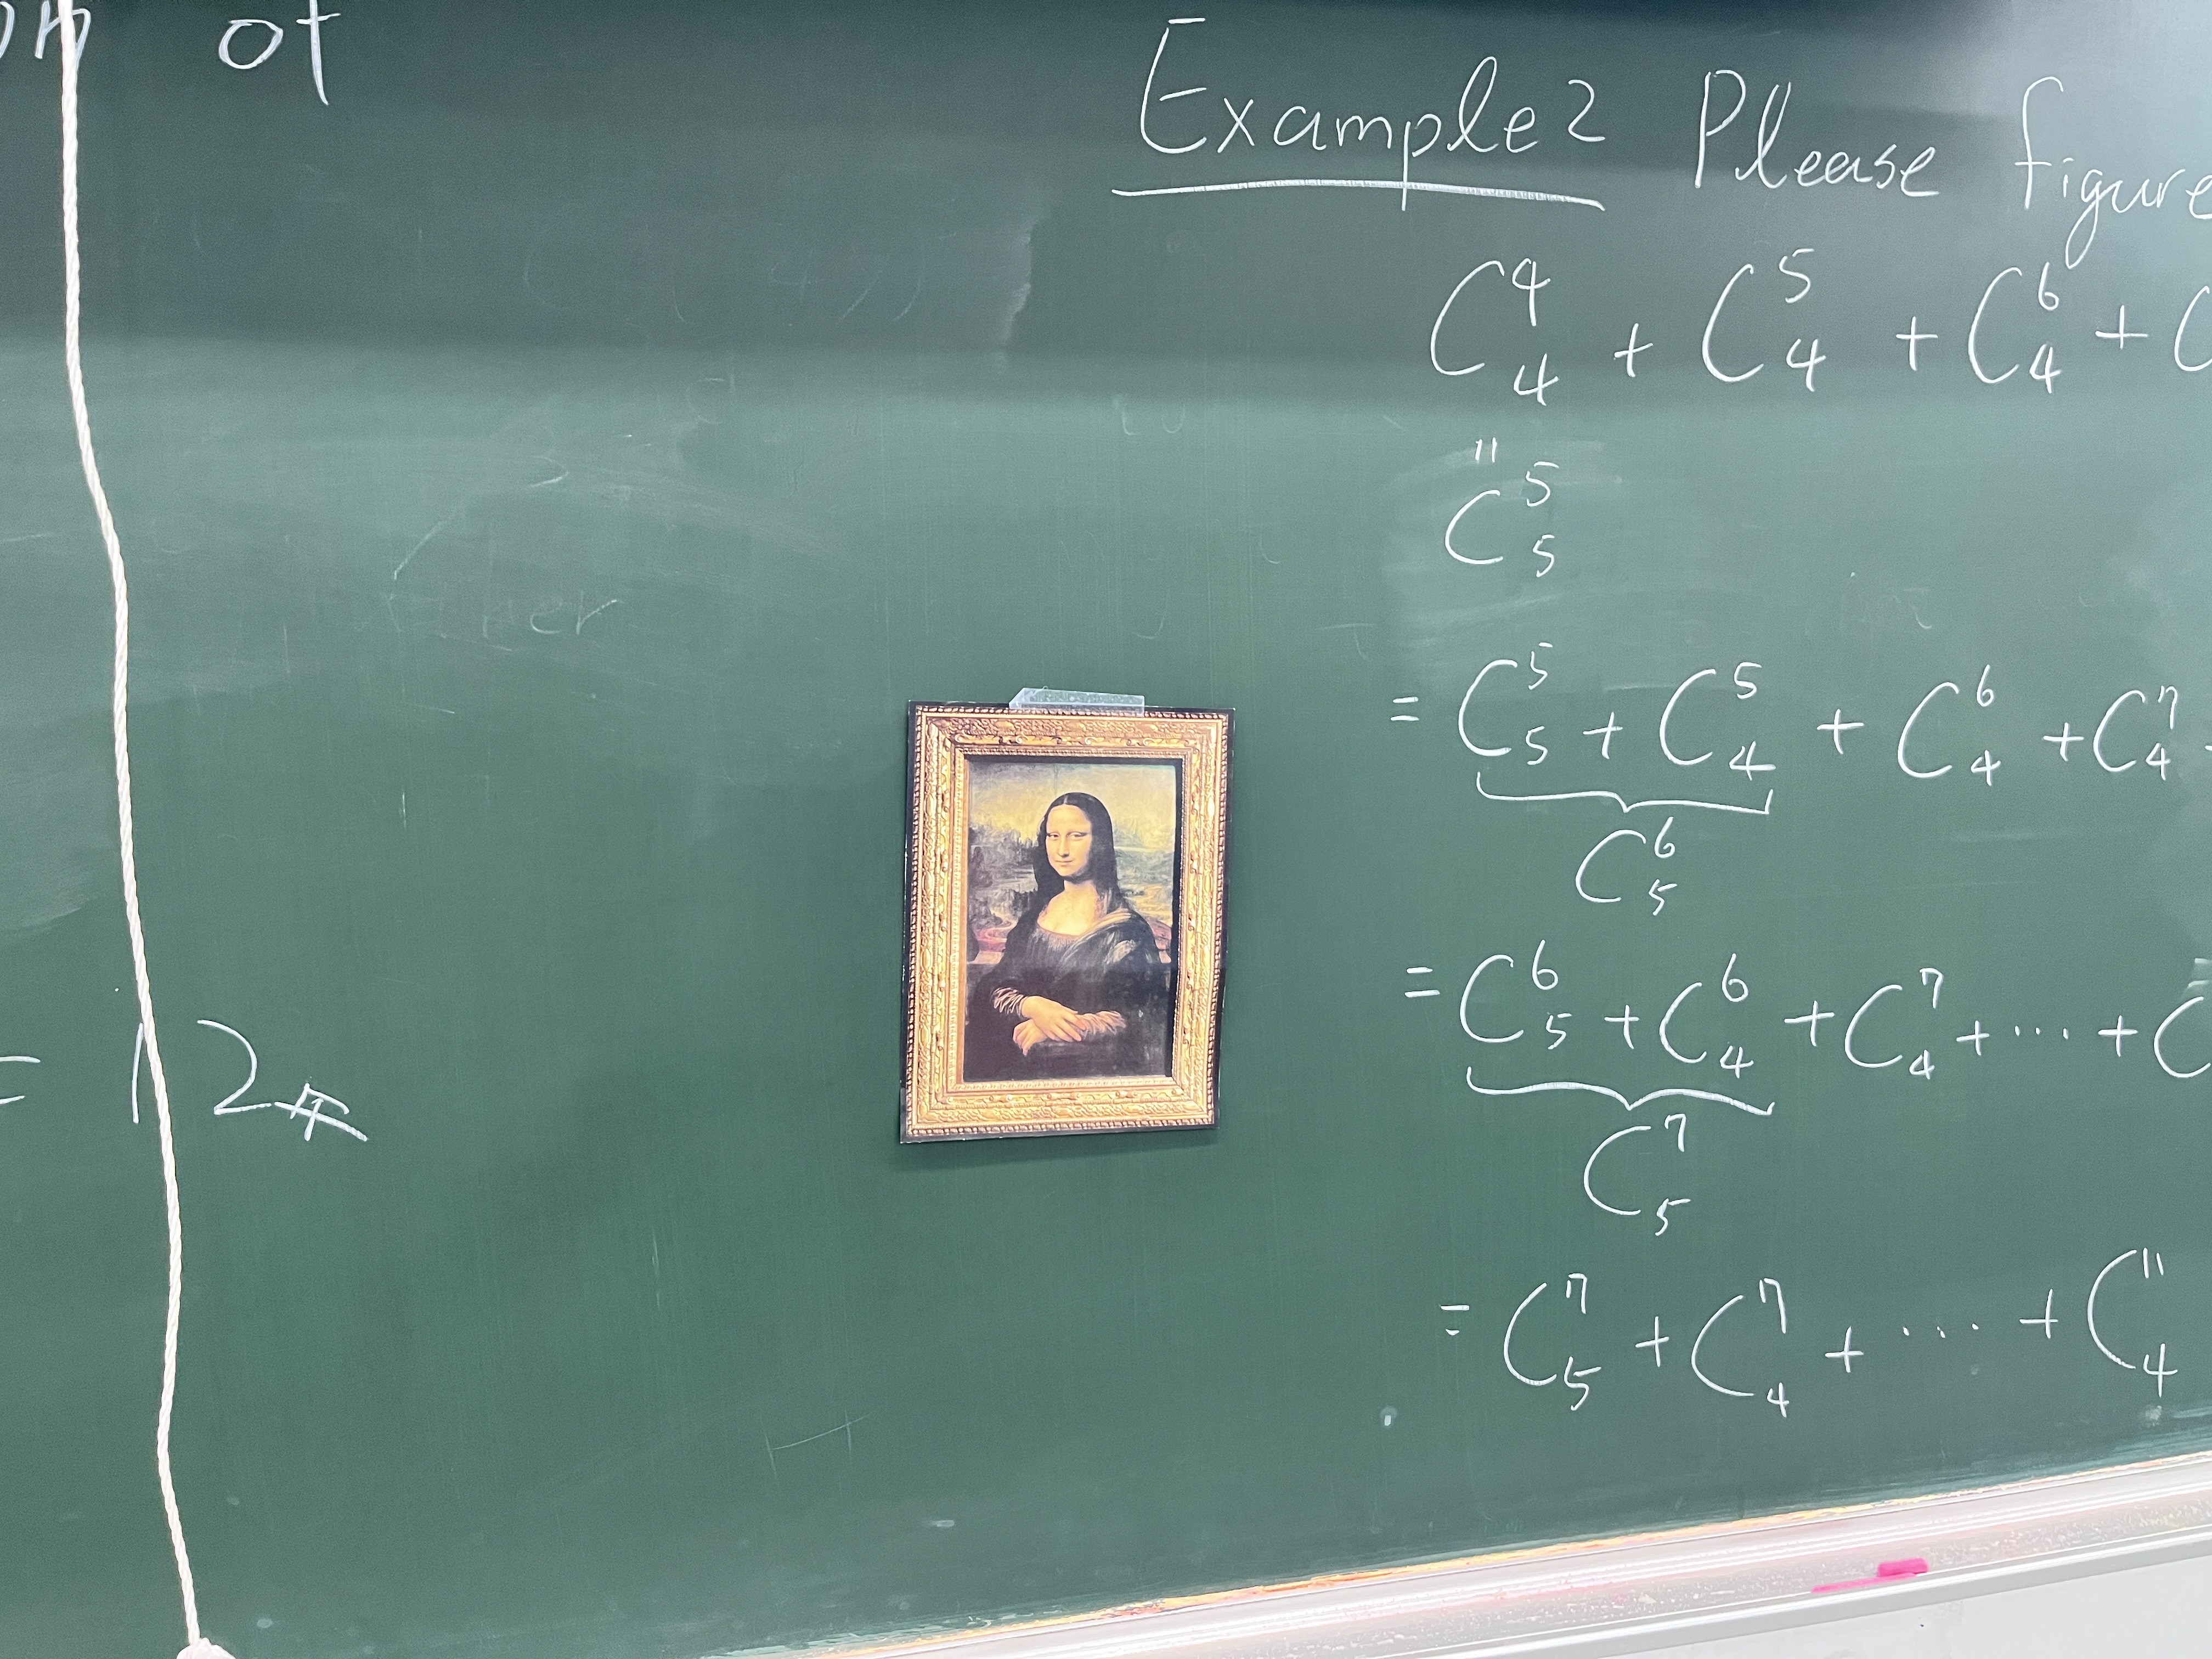 of
= 12
Example 2 Please figure
C⁴₄ + C⁵₄ + C⁶₄ + C
"
C⁵₅
= C⁵₅ + C⁵₄ + C⁶₄ + C⁷₄
C⁶₅
= C⁶₅ + C⁶₄ + C⁷₄ + ... + C
C⁷₅
= C⁷₅ + C⁷₄ + ... + C¹¹₄